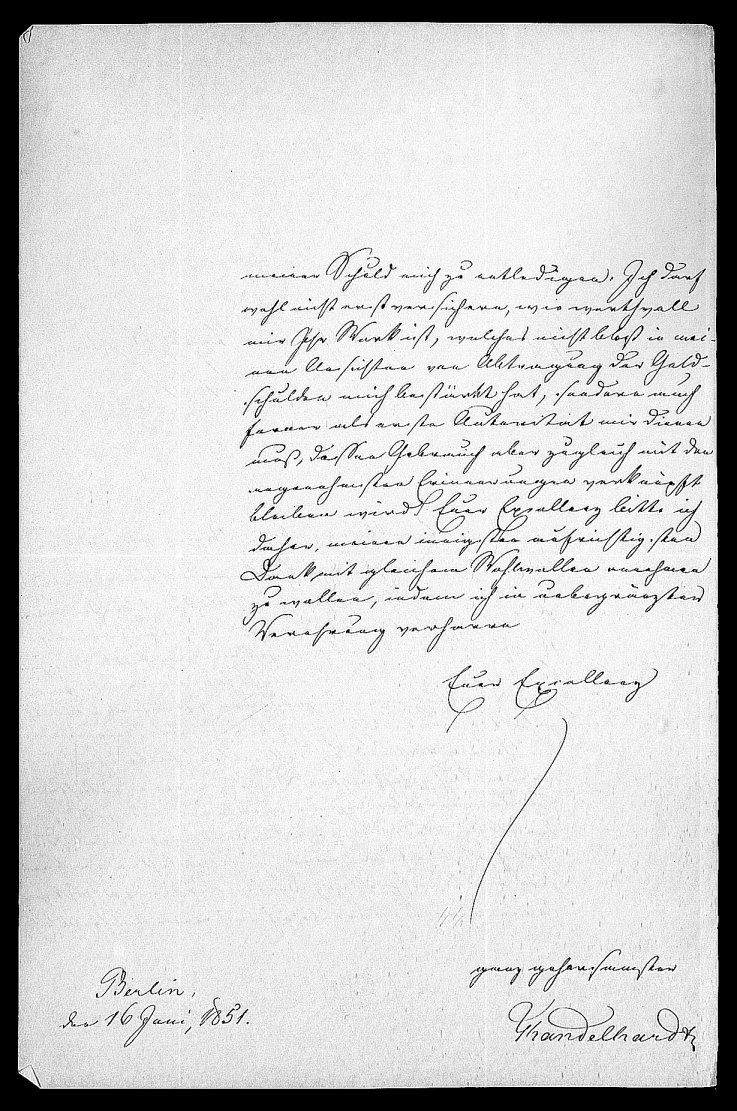 meiner Schuld mich zu entledigen. Ich darf
wohl nicht erst versichern, wie werthvoll
mir Ihr Werk ist, welches nicht bloß in mei-
nen Ansichten von Abtragung der Geld-
schulden mich bestärkt hat, sondern auch
ferner als erste Autorität mir dienen
muß, dessen Gebrauch aber zugleich mit den
angenehmsten Erinnerungen verknüpft
bleiben wird! Euer Excellenz bitte ich
daher, meinen innigsten aufrichtigsten
Dank mit gleichem Wohlwollen annehmen
zu wollen, indem ich in unbegränzter
Verehrung verharre
Euer Excellenz
ganz gehorsamster
Berlin,
den 16 Juni, 1851.